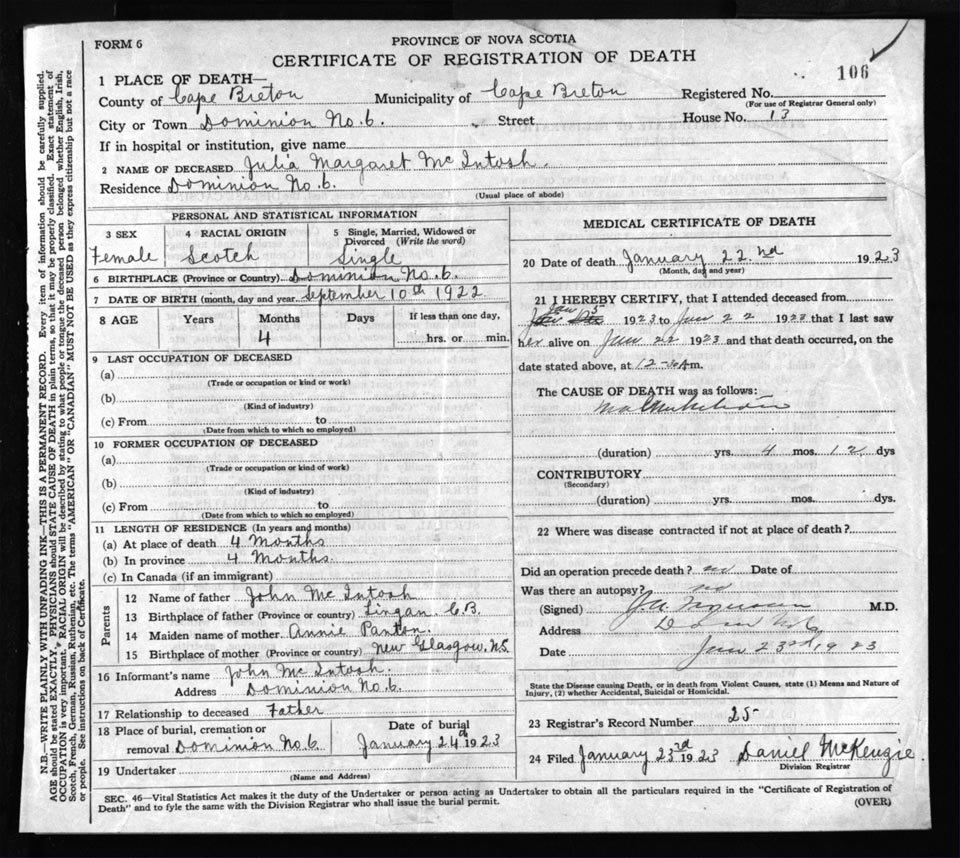 FORM 6
PROVINCE OF NOVA SCOTIA
CERTIFICATE OF REGISTRATION OF DEATH
106
1 PLACE OF DEATH—
County of Cape Breton Municipality of Cape Breton Registered No.
(For use of Registrar General only)
City or Town Dominion No. 6. Street House No. 13
If in hospital or institution, give name
2 NAME OF DECEASED Julia Margaret Mc Intosh.
Residence Dominion No. 6.
(Usual place of abode)
PERSONAL AND STATISTICAL INFORMATION
3 SEX 4 RACIAL ORIGIN 5 Single, Married, Widowed or Divorced (Write the word)
Female Scotch Single
6 BIRTHPLACE (Province or Country) Dominion No. 6.
7 DATE OF BIRTH (month, day and year. September 10th 1922
8 AGE Years Months Days If less than one day,
4 hrs. or min.
9 LAST OCCUPATION OF DECEASED
(a)
(Trade or occupation or kind or work)
(b)
(Kind of industry)
(c) From to
(Date from which to which so employed)
10 FORMER OCCUPATION OF DECEASED
(a)
(Trade or occupation or kind of work)
(b)
(Kind of industry)
(c) From to
(Date from which to which so employed)
11 LENGTH OF RESIDENCE (In years and months)
(a) At place of death 4 Months
(b) In province 4 Months.
(c) In Canada (if an immigrant)
Parents
12 Name of father John Mc Intosh
13 Birthplace of father (Province or country) Lingan C.B.
14 Maiden name of mother Annie Panton.
15 Birthplace of mother (Province or country) New Glasgow. N.S.
16 Informant's name John Mc Intosh.
Address Dominion No. 6.
17 Relationship to deceased Father
18 Place of burial, cremation or removal Dominion No. 6 Date of burial January 24th 1923
19 Undertaker
(Name and Address)
MEDICAL CERTIFICATE OF DEATH
20 Date of death January 22.nd 1923
(Month, day and year)
21 I HEREBY CERTIFY, that I attended deceased from
Jan 5 1923 to Jan 22 1923 that I last saw
her alive on Jan 22 1923 and that death occurred, on the
date stated above, at m.
The CAUSE OF DEATH was as follows:
Malnutrition
(duration) yrs. 4 mos. 12 dys
CONTRIBUTORY
(Secondary)
(duration) yrs. mos. dys.
22 Where was disease contracted if not at place of death?
Did an operation precede death? no Date of
Was there an autopsy? no
(Signed) M.D.
Address
Date Jan 23rd 1923
State the Disease causing Death, or in death from Violent Causes, state (1) Means and Nature of
Injury, (2) whether Accidental, Suicidal or Homicidal.
23 Registrar's Record Number 25
24 Filed January 23rd 1923 Daniel McKenzie.
Division Registrar
SEC. 46—Vital Statistics Act makes it the duty of the Undertaker or person acting as Undertaker to obtain all the particulars required in the "Certificate of Registration of
Death" and to fyle the same with the Division Registrar who shall issue the burial permit.
(OVER)
N.B.—WRITE PLAINLY WITH UNFADING INK—THIS IS A PERMANENT RECORD. Every item of information should be carefully supplied.
AGE should be stated EXACTLY. PHYSICIANS should STATE CAUSE OF DEATH in plain terms, so that it may be properly classified. Exact statement of
OCCUPATION is very important. RACIAL ORIGIN will be described by stating to what people or tongue the deceased person belonged whether English, Irish,
Scotch, French, German, Russian, Ruthenian, etc. The terms "AMERICAN" OR "CANADIAN" MUST NOT BE USED as they express citizenship but not a race
or people. See instructions on back of Certificate.